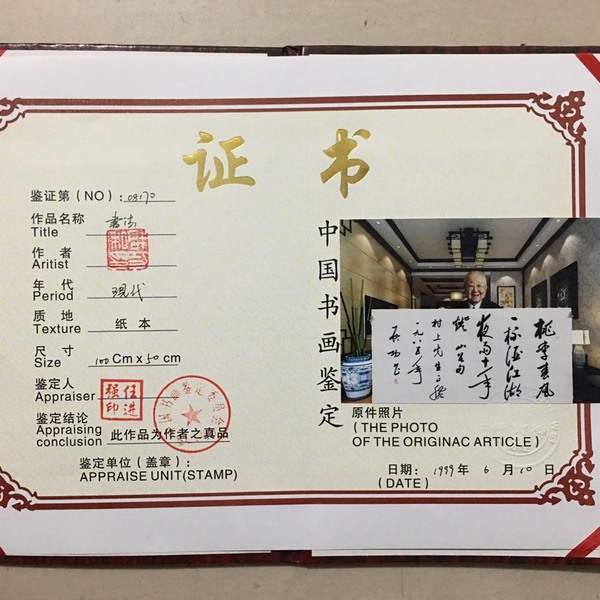 证 书
鉴证第（NO）: 08170
作品名称 书法
Title
作 者
Aritist
年 代 现代
Period
质 地 纸 本
Texture
尺 寸 100 Cm x 50 cm
Size
鉴定人
Appraiser
任进
强印
鉴定结论
Appraising
conclusion 此作品为作者之真品
鉴定单位（盖章）:
APPRAISE UNIT(STAMP)
中国书画鉴定
桃李春风
一杯酒江湖
夜雨十年
灯 山谷句
村上先生正腕
一九八三年
启功书
原件照片
( THE PHOTO
OF THE ORIGINAC ARTICLE )
日期: 1999 年 6 月 10 日
(DATE)